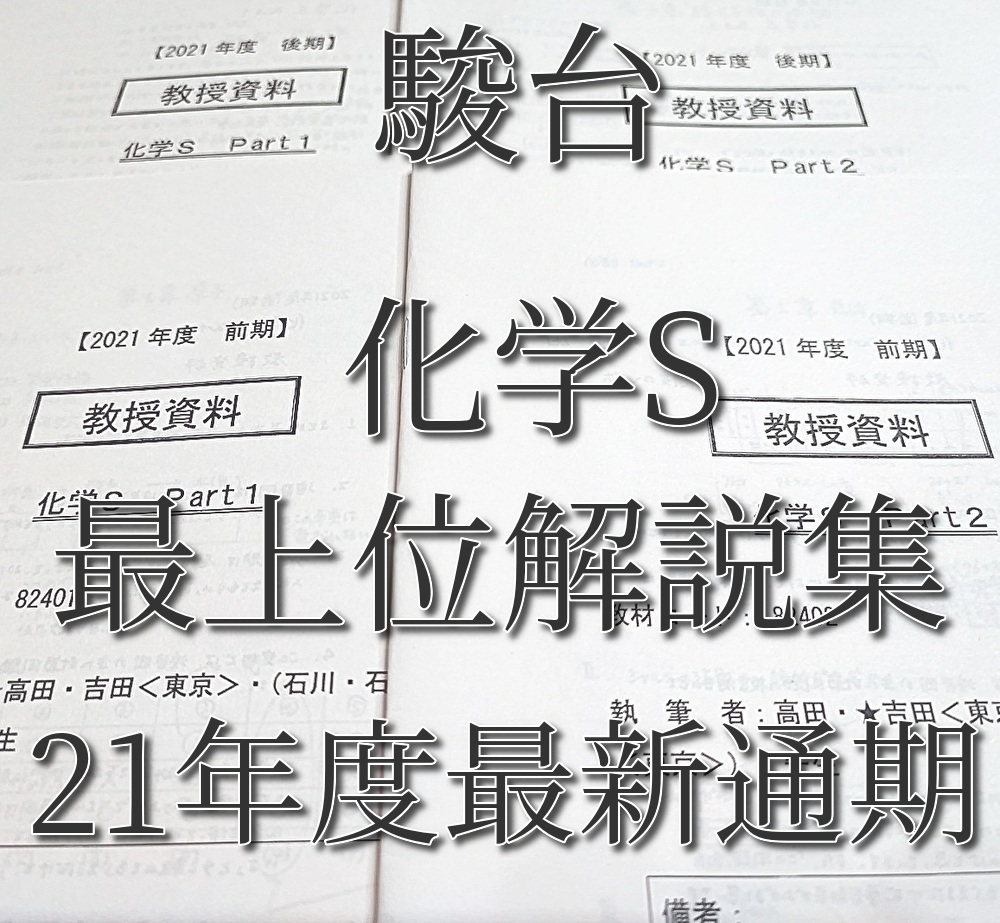 【2021年度 後期】
教授資料
化学S Part1
【2021年度 後期】
教授資料
化学S Part2
駿台
【2021年度 前期】
教授資料
化学S Part1
【2021年度 前期】
教授資料
化学S Part2
化学S
最上位解説集
高田・吉田<東京>・(石川・石
執 筆 者:高田・★吉田<東京
21年度最新通期
備考: